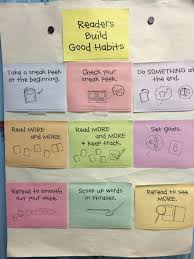 Readers
Build
Good Habits
Take a sneak peek
at the beginning.
Check your
sneak peek.
Do SOMETHING at
the end.
Read MORE
and MORE.
Read MORE
and MORE
+ keep track.
Set goals.
Reread to smooth
out your voice.
Scoop up words
in phrases.
Reread to see
MORE.